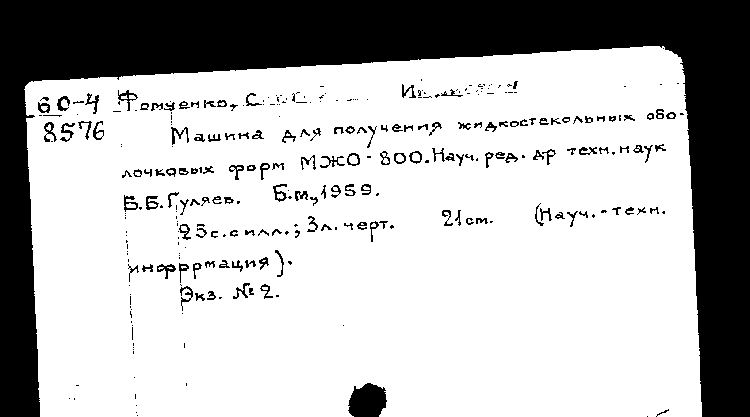 60-4 Фомченко, С
8576 Машина для получения жидкостекольных обо-
лочковых форм МЖО-800. Науч. ред. др техн. наук
Б.Б. Гуляев. Б.м., 1959.
25 с. с илл.; 3 л. черт. 21 cm. (Науч.-техн.
информация).
Экз. № 2.